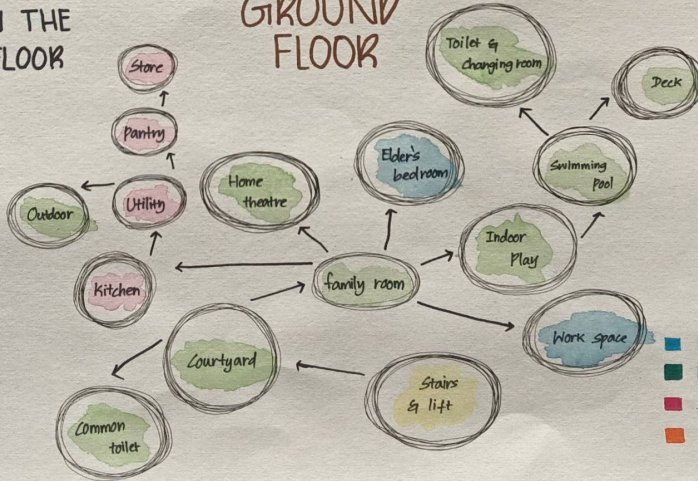 THE
FLOOR
GROUND
FLOOR
Store
Pantry
Utility
Outdoor
Kitchen
Home
theatre
Elder's
bedroom
Toilet &
Changing room
Deck
Swimming
Pool
Indoor
Play
family room
Work space
Courtyard
Stairs
& lift
Common
toilet